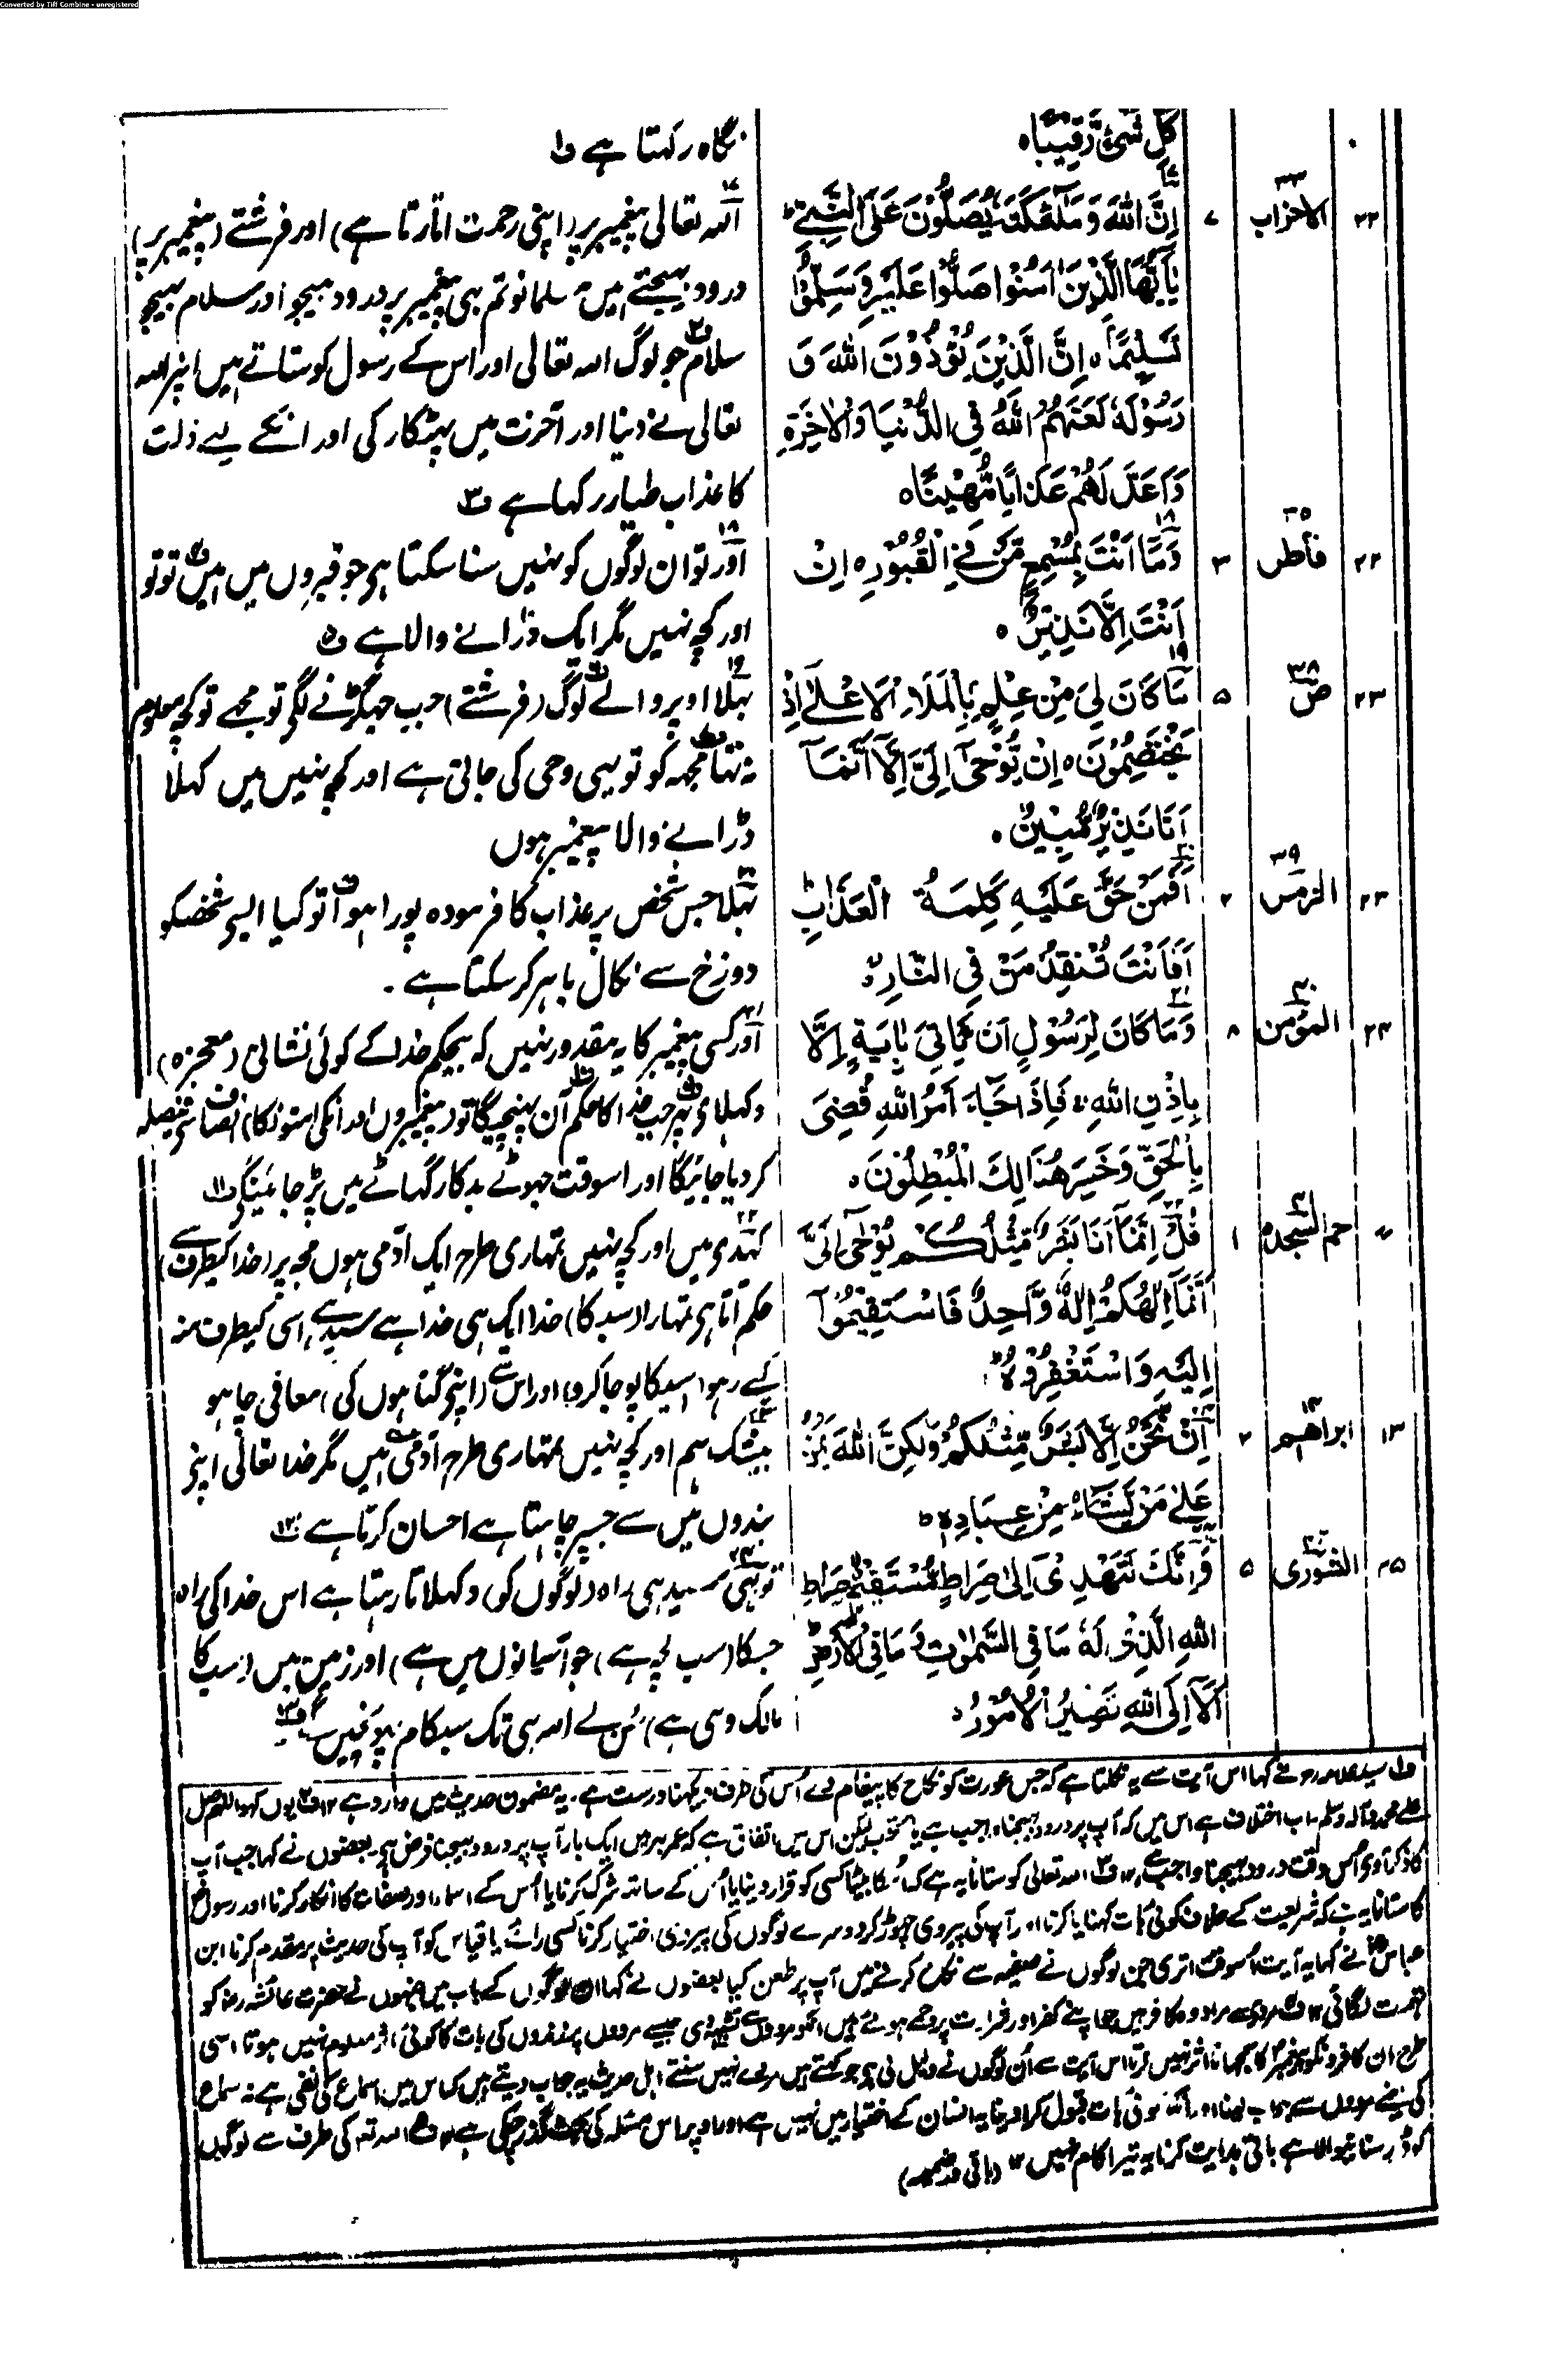 Converted by Tiff Combine - unregistered
كُلِّ شَيْءٍ رَّقِيبًا ہ
نگاہ رکہتا ہے ف۱
۲۲ الاحزاب ۳۳ ۷
اِنَّ اللهَ وَمَلٰٓئِكَتَهٗ يُصَلُّوْنَ عَلَى النَّبِيِّ ط
يٰٓاَيُّهَا الَّذِيْنَ اٰمَنُوْا صَلُّوْا عَلَيْهِ وَسَلِّمُوْا
تَسْلِيْمًا ہ اِنَّ الَّذِيْنَ يُؤْذُوْنَ اللهَ وَ
رَسُوْلَهٗ لَعَنَهُمُ اللهُ فِي الدُّنْيَا وَالْاٰخِرَةِ
وَاَعَدَّ لَهُمْ عَذَابًا مُّهِيْنًا ہ
اللہ تعالی پیغمبر پر (اپنی رحمت اتارتا ہے) اور فرشتے (پیغمبر پر)
درود بہیجتے ہیں مسلمانو تم بہی پیغمبر پر درود بہیجو اور سلام بہیجو
سلام ف۲ جو لوگ اللہ تعالی اور اس کے رسول کو ستاتے ہیں انپر اللہ
تعالی نے دنیا اور آخرت میں پہٹکار کی اور انکے لیے ذلت
کا عذاب طیار رکہا ہے ف۳
۲۲ فاطر ۳۵ ۳
۱۸ وَمَآ اَنْتَ بِمُسْمِعٍ مَّنْ فِي الْقُبُوْرِ ہ اِنْ
اَنْتَ اِلَّا نَذِيْرٌ ہ
۱۸ اور تو ان لوگوں کو نہیں سنا سکتا ہی جو قبروں میں ہیں ف۴ تو تو
اور کچہ نہیں مگر ایک ڈرانے والا ہے ف۵
۲۳ صٓ ۳۸ ۵
۱۹ مَا كَانَ لِيَ مِنْ عِلْمٍ بِالْمَلَاِ الْاَعْلٰٓى اِذْ
يَخْتَصِمُوْنَ ہ اِنْ يُّوْحٰٓى اِلَيَّ اِلَّآ اَنَّمَآ
اَنَا نَذِيْرٌ مُّبِيْنٌ ہ
۱۹ بہلا اوپر والے لوگ (فرشتے) جب جہگڑنے لگی تو مجہے تو کچہ معلوم
نہ تہا مجہہ کو تو یہی وحی کی جاتی ہے اور کچہ نہیں میں کہلا
ڈرانے والا پیغمبر ہوں
۲۳ الزمر ۳۹ ۲
اَفَمَنْ حَقَّ عَلَيْهِ كَلِمَةُ الْعَذَابِ
اَفَاَنْتَ تُنْقِذُ مَنْ فِي النَّارِ
۲۰ بہلا جس شخص پر عذاب کا فرمودہ پورا ہوا تو کیا ایسی شخصکو
دوزخ سے نکال باہر کر سکتا ہے ۔
۲۴ المؤمن ۴۰ ۸
۲۱ وَمَا كَانَ لِرَسُوْلٍ اَنْ يَّاْتِيَ بِاٰيَةٍ اِلَّا
بِاِذْنِ اللهِ فَاِذَا جَآءَ اَمْرُ اللهِ قُضِيَ
بِالْحَقِّ وَخَسِرَ هُنَالِكَ الْمُبْطِلُوْنَ ہ
۲۱ اور کسی پیغمبر کا یہ مقدور نہیں کہ بیحکم خدا کے کوئی نشانی (معجزہ)
دکہلاوی پہر جب خدا کا حکم آن پہنچیگا تو (پیغمبروں اور انکی امتوں کا) انصاف سے فیصلہ
کر دیا جائیگا اور اسوقت جہوٹے بدکار گہاٹے میں پڑ جائینگی ف۱۱
〃 حم السجدہ ۴۱ ۱
قُلْ اِنَّمَآ اَنَا بَشَرٌ مِّثْلُكُمْ يُوْحٰٓى اِلَيَّ
اَنَّمَآ اِلٰهُكُمْ اِلٰهٌ وَّاحِدٌ فَاسْتَقِيْمُوْٓا
اِلَيْهِ وَاسْتَغْفِرُوْهُ
۲۲ کہدی میں اور کچہ نہیں تمہاری طرح ایک آدمی ہوں مجہ پر (خدا کیطرف سے)
حکم آتا ہی تمہارا (سب کا) خدا ایک ہی خدا ہے سیدہے اسی کیطرف منہ
کیے رہو (اسیکا پوجا کرو) اور اس سے (اپنی گناہوں کی) معافی چاہو
۱۳ ابراہیم ۱۴ ۲
اِنْ نَّحْنُ اِلَّا بَشَرٌ مِّثْلُكُمْ وَلٰكِنَّ اللهَ يَمُنُّ
عَلٰى مَنْ يَّشَآءُ مِنْ عِبَادِهٖ ط
۲۳ بیشک ہم اور کچہ نہیں تمہاری طرح آدمی ہیں مگر خدا تعالی اپنی
بندوں میں سے جسپر چاہتا ہے احسان کرتا ہے ف۱۲
۲۵ الشوری ۴۲ ۵
وَاِنَّكَ لَتَهْدِيْٓ اِلٰى صِرَاطٍ مُّسْتَقِيْمٍ صِرَاطِ
اللهِ الَّذِيْ لَهٗ مَا فِي السَّمٰوٰتِ وَمَا فِي الْاَرْضِ
اَلَآ اِلَى اللهِ تَصِيْرُ الْاُمُوْرُ
۲۴ تو بہی سیدہی راہ (لوگوں کو) دکہلاتا رہتا ہے اس خدا کی راہ
جسکا (سب کچہ ہے) جو آسمانوں میں ہے) اور زمین میں (سبکا
مالک وہی ہے) سُن لے اللہ ہی تک سبکام پہونچیں گے
ف۱ سید علامہ رح نے کہا اس آیت سے یہ نکلتا ہے کہ جس عورت کو نکاح کا پیغام دے اُس کی طرف دیکہنا درست ہے ۔ یہ مضمون حدیث میں وارد ہے ۱۲ ف۲ یوں کہو اللہم صل
علے محمد وآلہ وسلم ۔ اب اختلاف ہے اس میں کہ آپ پر درود بہیجنا واجب ہے یا مستحب لیکن اس میں اتفاق ہے کہ عمر بہر میں ایک بار آپ پر درود بہیجنا فرض ہی بعضوں نے کہا جب آپ
کا ذکر آوی اُس وقت درود بہیجنا واجب ہے ۱۲ ف۳ اللہ تعالی کو ستانا یہ ہے کہ اُسکا بیٹا کسی کو قرار دینا یا اُس کے ساتہ شرک کرنا یا اُس کے اسماء اور صفات کا انکار کرنا اور رسول
کا ستانا یہ ہے کہ شریعت کے خلاف کوئی بات کہنا یا کرنا اور آپ کی پیروی چہوڑ کر دوسرے لوگوں کی پیروی اختیار کرنا کسی رائے یا قیاس کو آپ کی حدیث پر مقدم کرنا ابن
عباس نے کہا یہ آیت اُسوقت اتری جن لوگوں نے صفیہ سے نکاح کرنے میں آپ پر طعن کیا بعضوں نے کہا ان لوگوں کے باب میں جنہوں نے حضرت عائشہ رض کو
تہمت لگائی ۱۲ ف۴ مردوں سے مراد وہ کافر ہیں جو اپنے کفر اور شرارت پر جمے ہوئے ہیں انکو مردوں سے تشبیہ دی جیسے مردوں پر نذروں کی بات کا کوئی اثر معلوم نہیں ہوتا اسی
طرح ان کافرونکو پیغمبر کا سمجہانا اثر نہیں کرتا اس آیت سے اُن لوگوں نے دلیل لی ہی جو کہتے ہیں مردے نہیں سنتے اہل حدیث یہ جواب دیتے ہیں کہ اس میں اسماع کی نفی ہے نہ سماع
کی یعنے مردوں سے جواب لینا اور بات قبول کرا دینا یہ انسان کے اختیار میں نہیں ہے اور اوپر اس مسئلہ کی بحث گذر چکی ہے ۱۲ ف۵ اللہ تعہ کی طرف سے لوگوں
کو ڈر سنانیوالا ہے باقی ہدایت کرنا یہ تیرا کام نہیں ۱۲ (باقی در ضمیمہ)